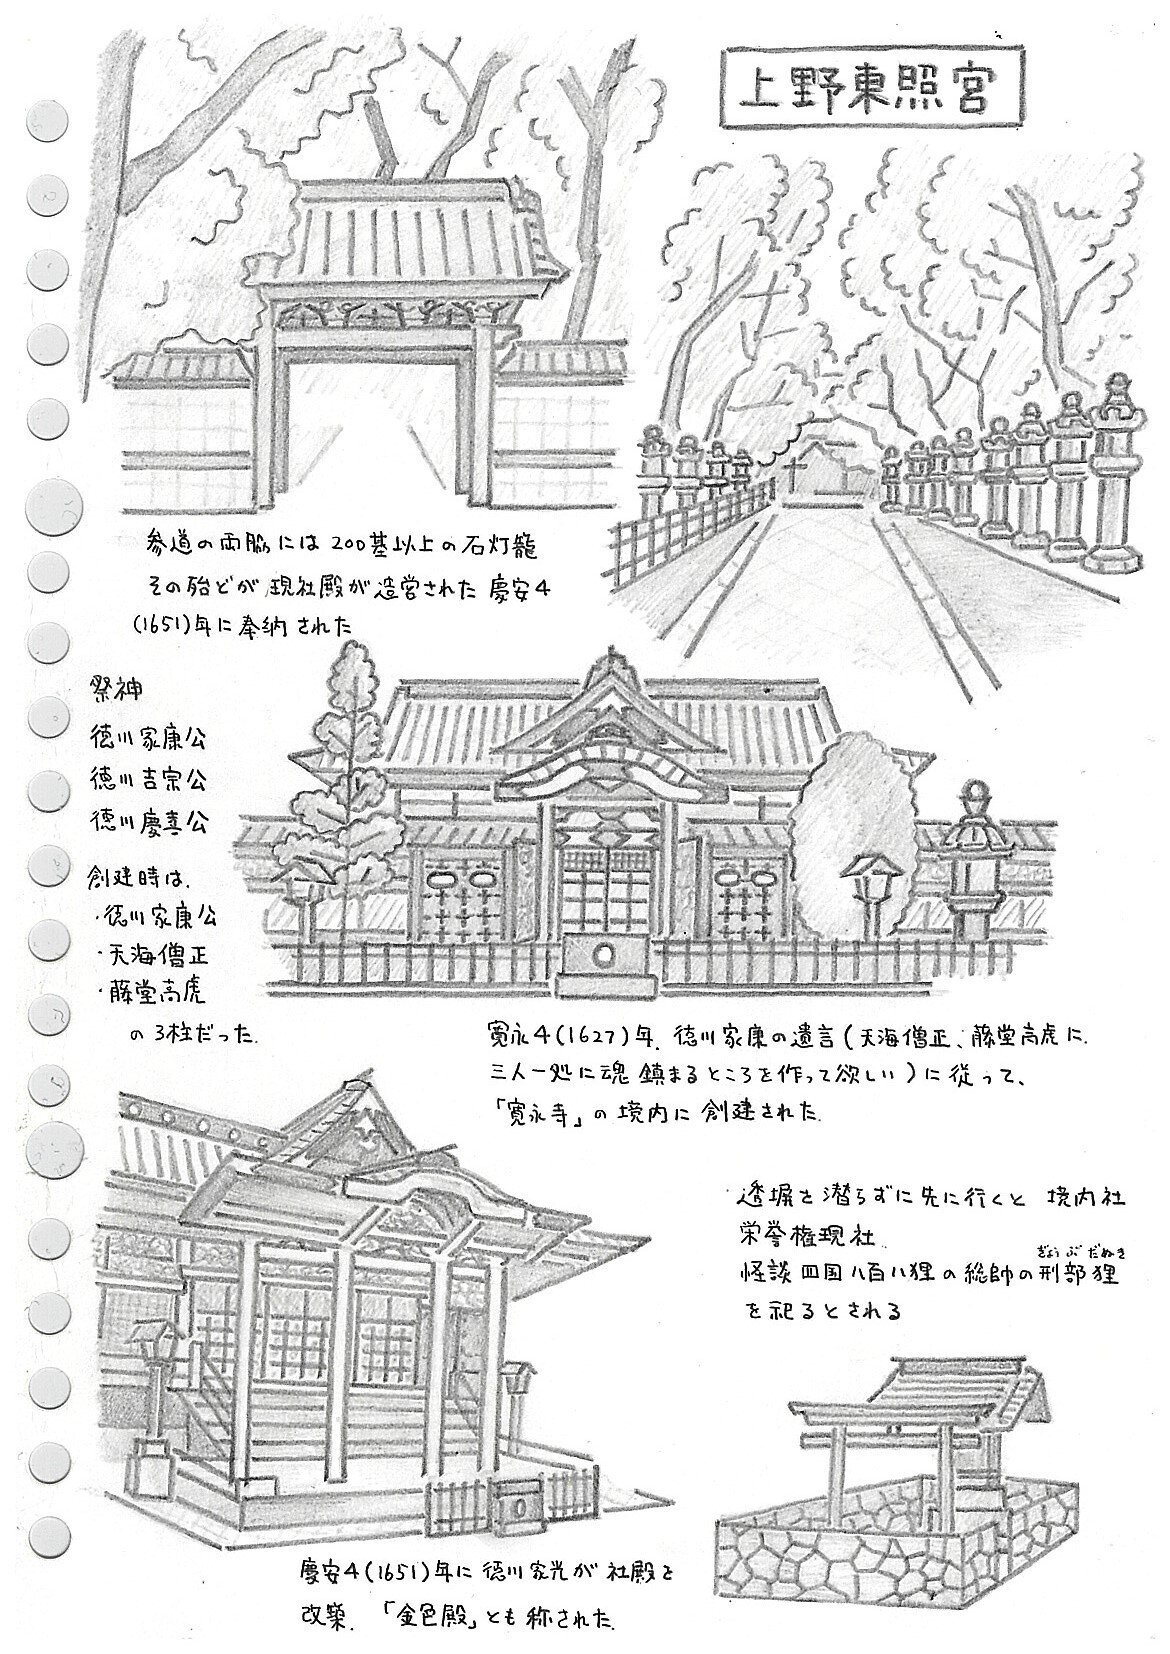 上野東照宮
参道の両脇には200基以上の石灯籠
その殆どが現社殿が造営された慶安4
(1651)年に奉納された
祭神
徳川家康公
徳川吉宗公
徳川慶喜公
創建時は、
・徳川家康公
・天海僧正
・藤堂高虎
の3柱だった.
寛永4(1627)年、徳川家康の遺言(天海僧正、藤堂高虎に、
三人一処に魂鎮まるところを作って欲しい)に従って、
「寛永寺」の境内に創建された.
透塀を潜らずに先に行くと 境内社
栄誉権現社
怪談四国八百八狸の総帥の刑部狸
ぎょうぶだぬき
を祀るとされる
慶安4(1651)年に徳川家光が社殿を
改築.「金色殿」とも称された.